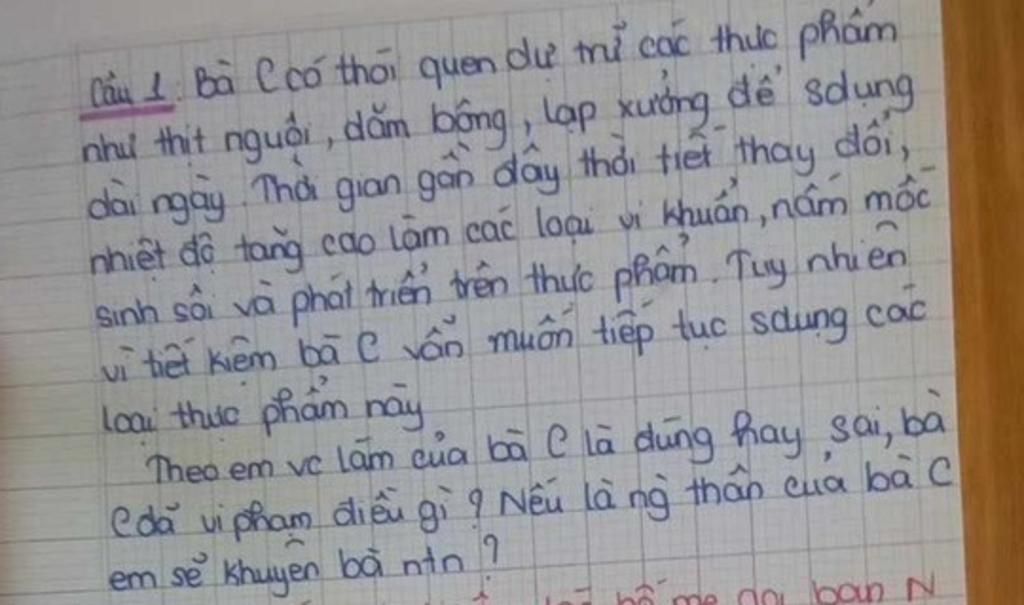 Câu 1. Bà C có thói quen dự trữ các thực phẩm
như thịt nguội, dăm bông, lạp xưởng để sdụng
dài ngày. Thời gian gần đây thời tiết thay đổi,
nhiệt độ tăng cao làm các loại vi khuẩn, nấm mốc
sinh sôi và phát triển trên thực phẩm. Tuy nhiên
vì tiết kiệm bà C vẫn muốn tiếp tục sdụng các
loại thực phẩm này
Theo em vc làm của bà C là đúng hay sai, bà
C đã vi phạm điều gì? Nếu là ng thân của bà C
em sẽ khuyên bà ntn?
bố mẹ bạn N